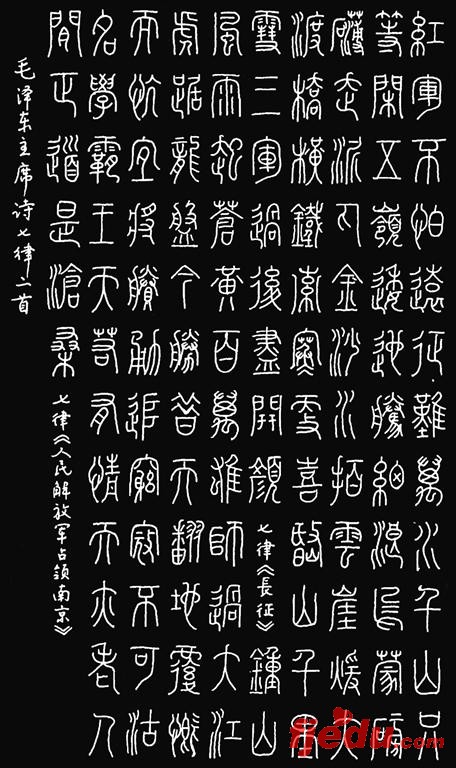 紅軍不怕遠征難萬水千山只
等閑五嶺逶迤騰細浪烏蒙磅
礴走泥丸金沙水拍雲崖煖大
渡橋橫鐵索寒更喜岷山千里
雪三軍過後盡開顏 七律《長征》 鐘山
風雨起蒼黃百萬雄師過大江
虎踞龍盤今勝昔天翻地覆慨
而慷宜將賸勇追窮寇不可沽
名學霸王天若有情天亦老人
間正道是滄桑 七律《人民解放军占领南京》
毛泽东主席诗七律二首
fjedu.com